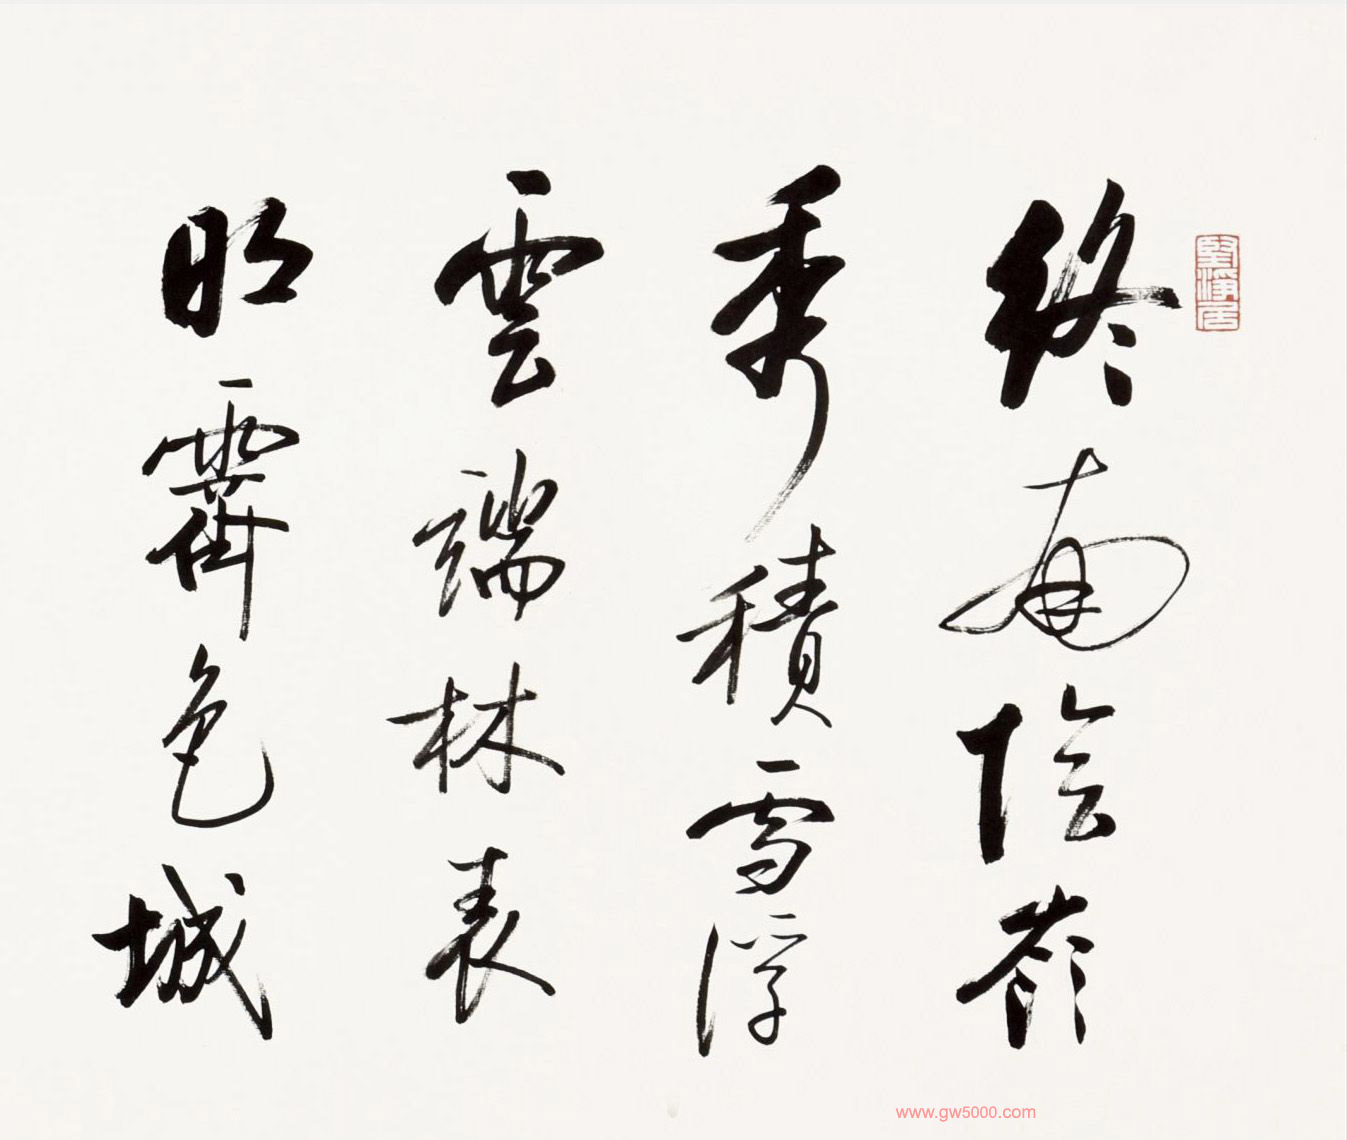 堅淨居
終南陰嶺
秀積雪浮
雲端林表
明霽色城
www.gw5000.com